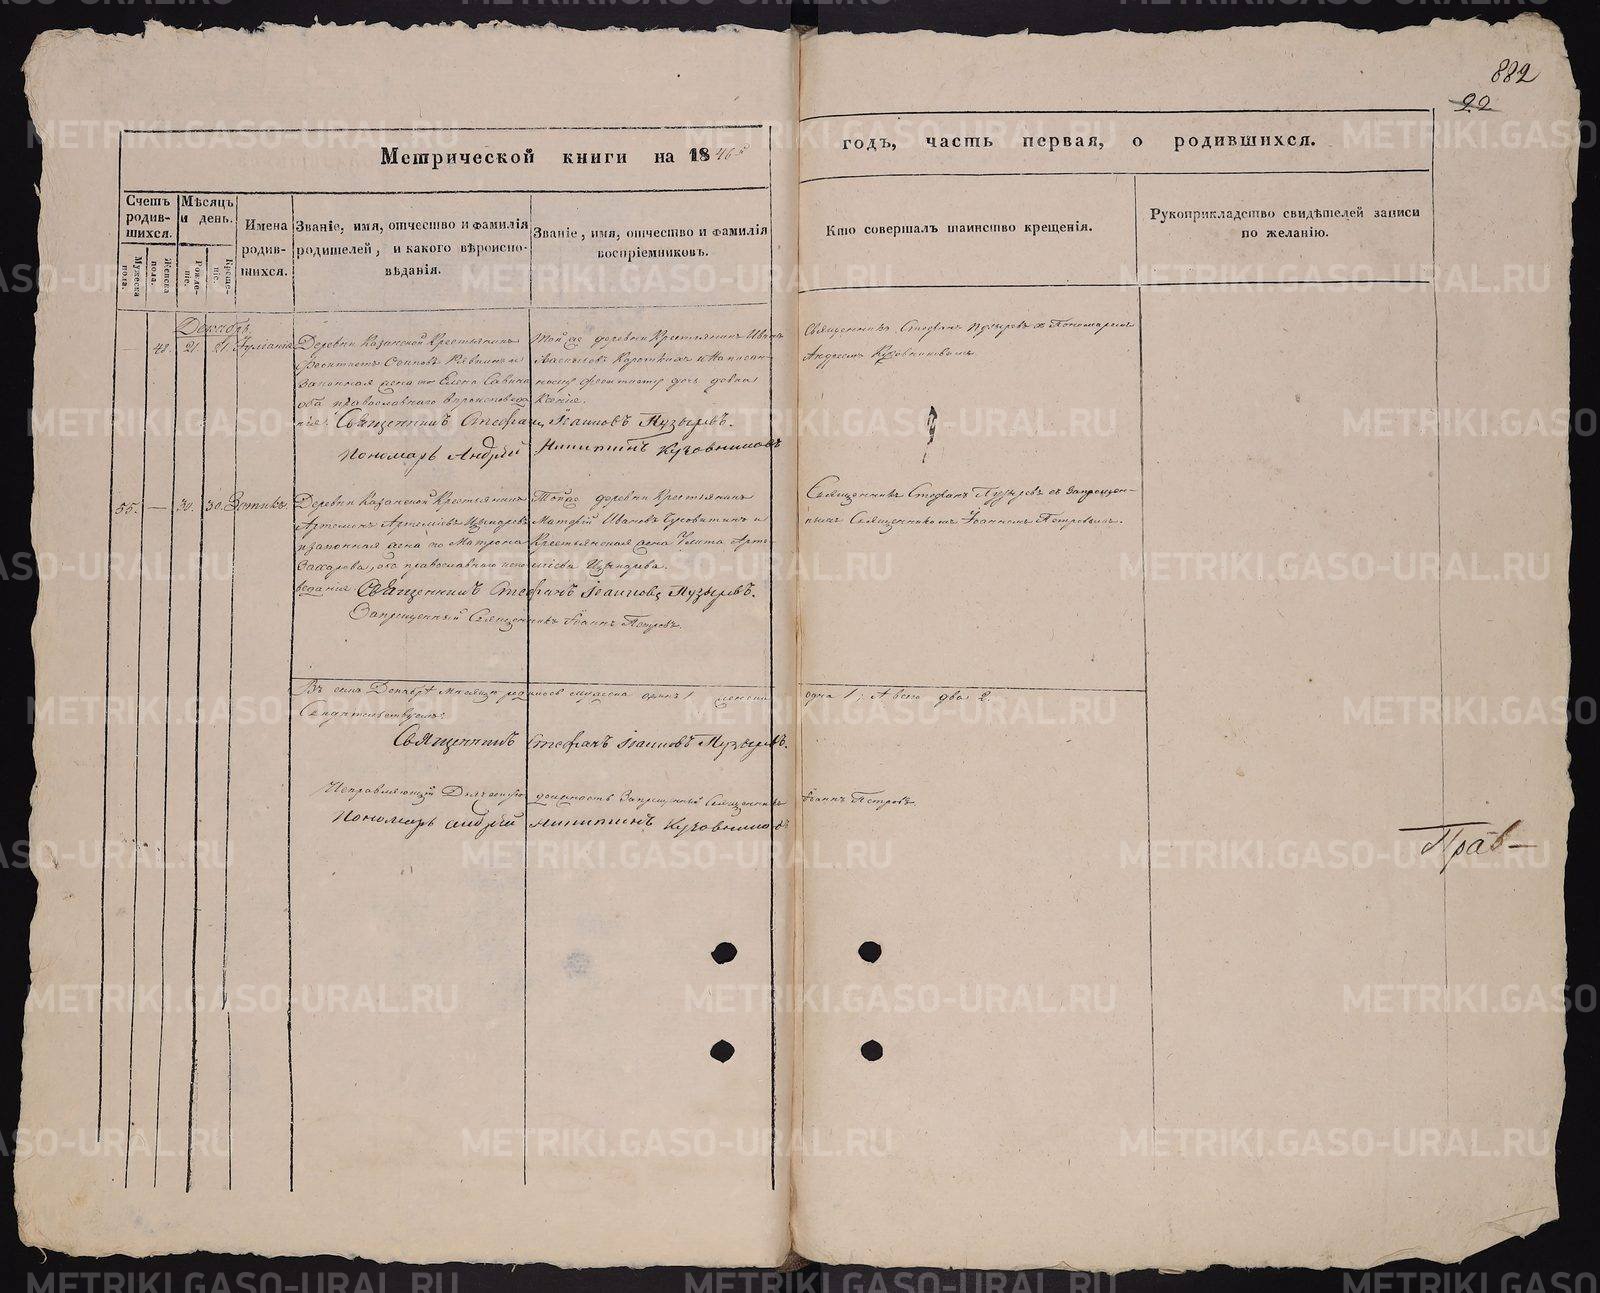 882
22
Метрической книги на 1846й
годъ, часть первая, о родившихся.
Счетъ родив-шихся.
Мужеска пола.
Женска пола.
Мѣсяцъ и день.
Рожде-ніе.
Креще-ніе.
Имена родив-шихся.
Званіе, имя, отчество и фамилія
родителей, и какого вѣроиспо-
вѣданія.
Званіе, имя, отчество и фамилія
воспріемниковъ.
Кто совершалъ таинство крещенія.
Рукоприкладство свидѣтелей записи
по желанію.
Декабрь
— 48. 21. 21. Іуліанія
Деревни Казанской Крестьянинъ
законная жена его Елена Савина
оба православнаго вѣроисповѣда
нія. Священникъ Стефанъ Іоанновъ Пузыревъ.
Пономарь Андрей Никитинъ Кузовниковъ
Той же деревни Крестьянинъ Иванъ
дочь девка
Ксенія.
Священникъ Стефанъ Пузыревъ съ Пономаремъ
Андреемъ Кузовниковымъ.
55. — 30. 30. Зотикъ.
Деревни Казанской Крестьянинъ
Артемонъ Артемьевъ
и законная жена его Матрона
Захарова, оба православнаго испо
веданія Священникъ Стефанъ Іоанновъ Пузыревъ.
Запрещенный Священникъ Іоаннъ Петровъ.
Той же деревни Крестьянинъ
Матфій Ивановъ
Крестьянская жена Улита Арте
мьева
Священникъ Стефанъ Пузыревъ съ Запрещен-
нымъ Священникомъ Іоанномъ Петровымъ.
Въ семъ Декабрѣ Месяцѣ родилось мужеска одинъ 1 женска одна 1; А всего два 2.
Свидѣтельствуемъ:
Священникъ Стефанъ Іоанновъ Пузыревъ.
Исправляющій должность Запрещенный Священникъ Іоаннъ Петровъ.
Пономарь Андрей Никитинъ Кузовниковъ
Прав—
METRIKI.GASO-URAL.RU